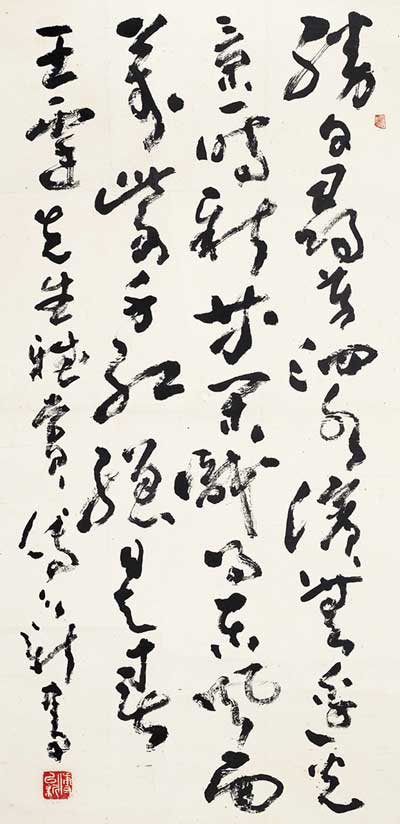 勝日尋芳泗水濱無邊光
景一時新等閒識得東風面
萬紫千紅總是春
王霆先生雅賞 傅以新書